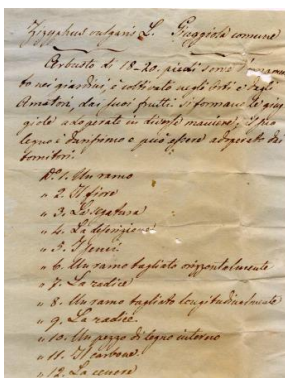 Zizyphus vulgaris L. Giuggiolo comune
Arbusto di 18-20. piedi serve d'ornamen
to nei giardini, è coltivato negli Orti e dagli
Amatori, dai suoi frutti si formano le giug
giole adoperate in diverse maniere; il suo
legno è durissimo e può essere adoperato dai
tornitori.
No. 1. Un ramo
" 2. Il fiore
" 3. La segatura
" 4. La descrizione
" 5. I semi
" 6. Un ramo tagliato orizzontalmente
" 7. La radice
" 8. Un ramo tagliato longitudinalmente
" 9. La radice
" 10. Un pezzo di legno interno
" 11. Il carbone
" 12. La cenere